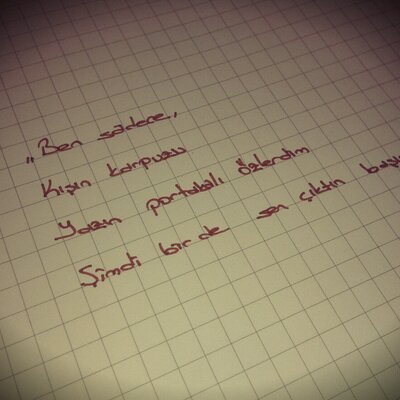 „Ben sadece,
Kışın karpuzu
Yazın portakalı özlerdim
Şimdi bir de sen çıktın